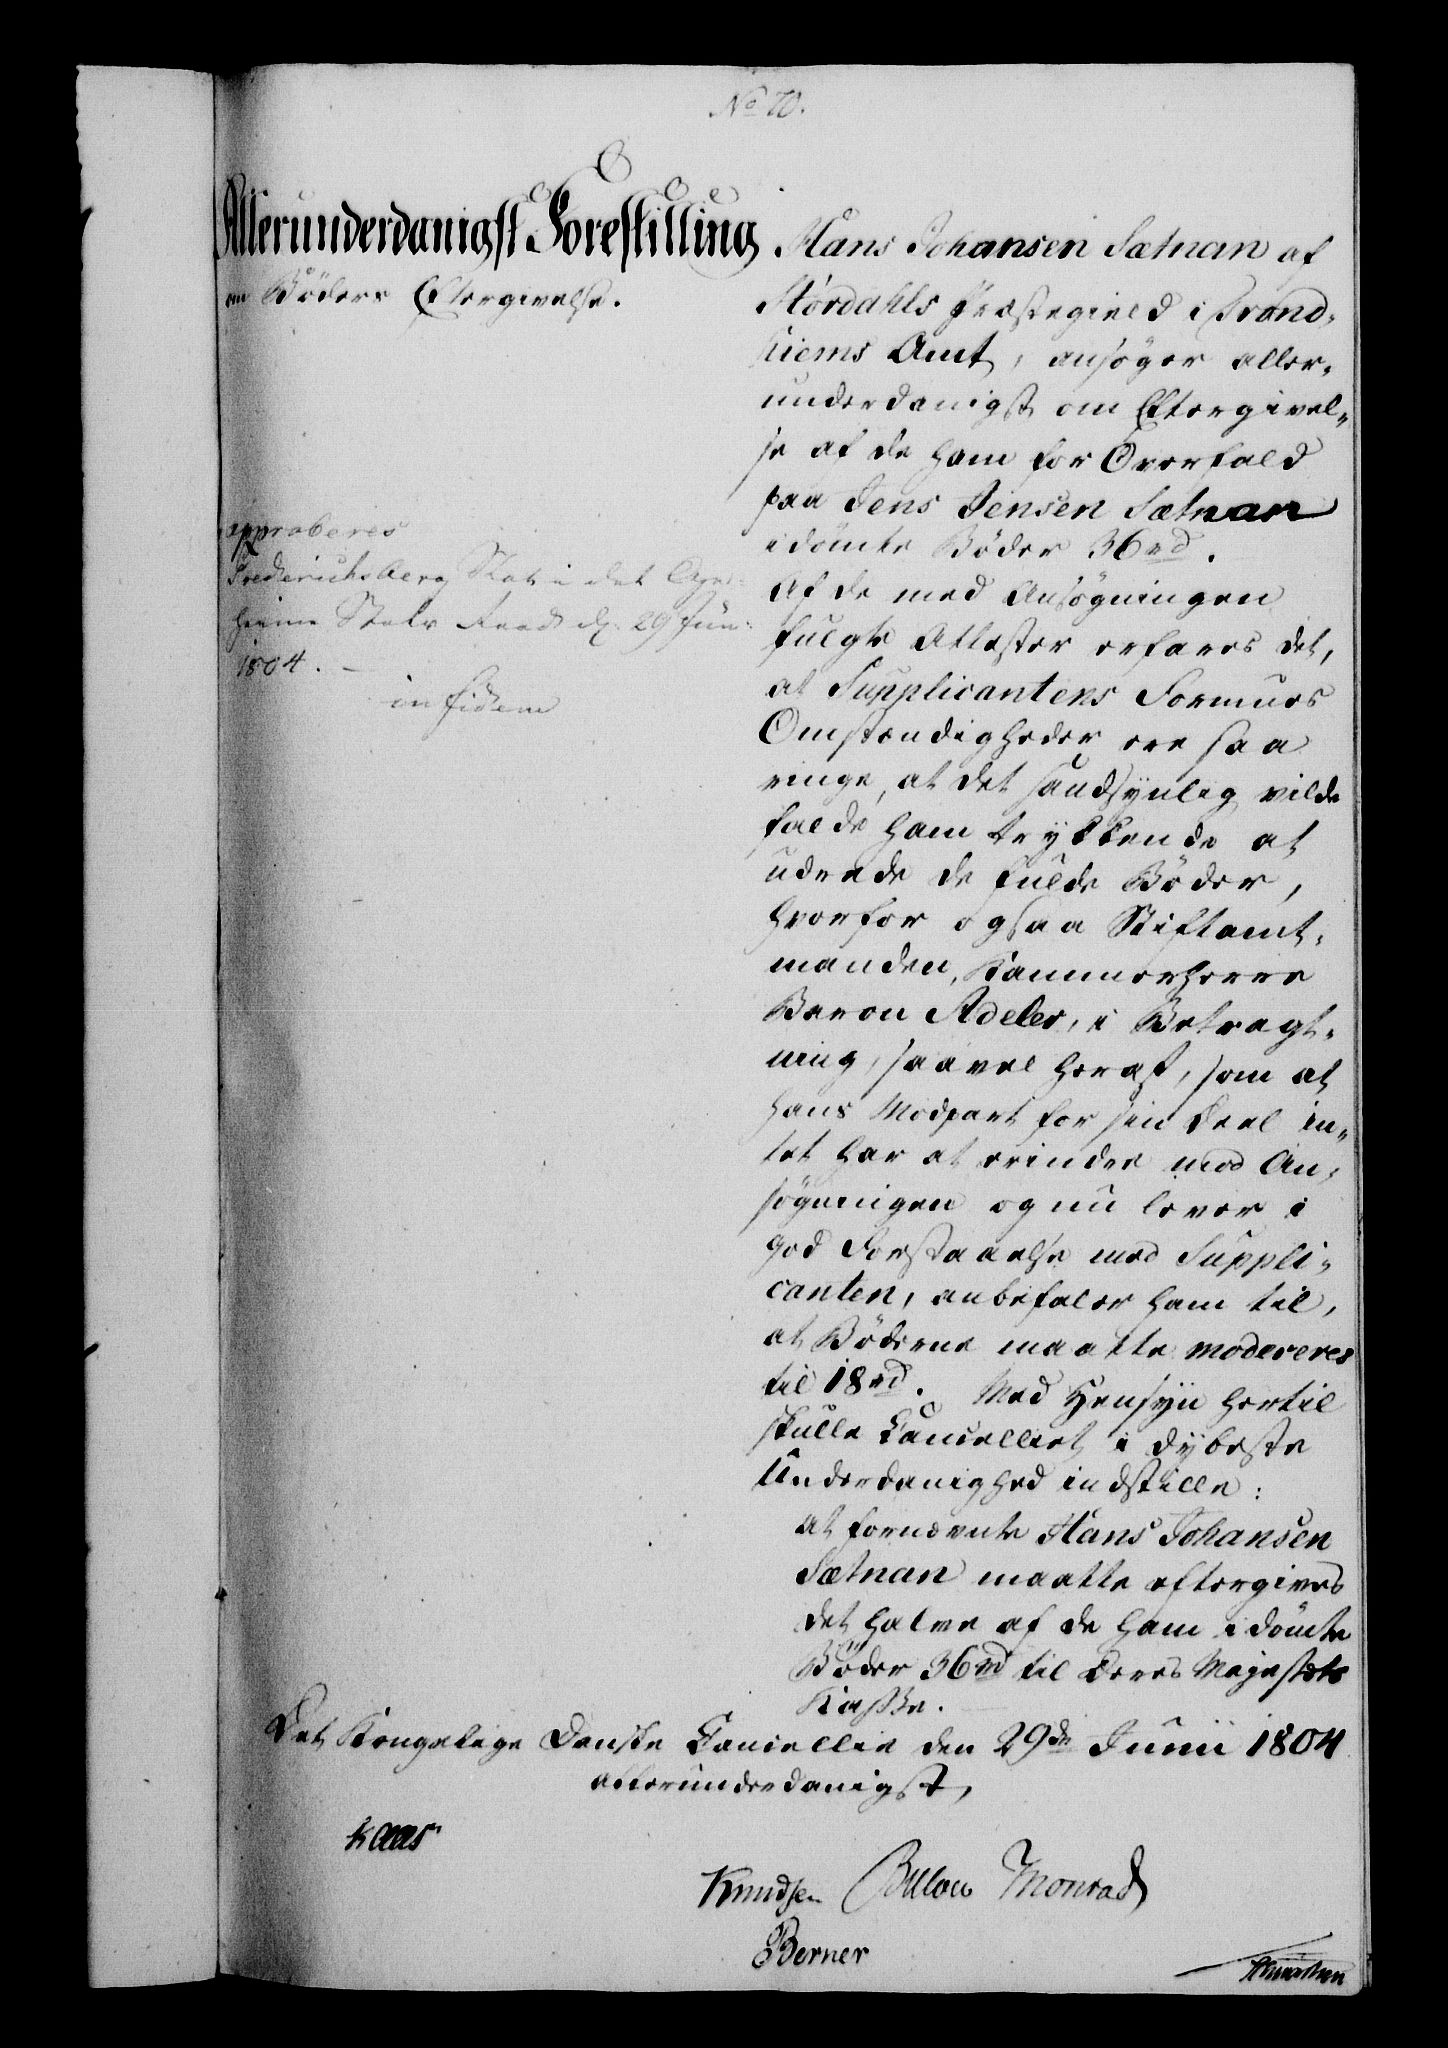 No 70.
Allerunderdanigst Forestilling
om Böders Eftergivelse.
approberes
Frederichsberg Slot i det Ge-
heime Stats Raad d. 29 Jun:
1804. -
in fidem
Hans Johansen Sætnan af
Stördahls Præstegield i Trond-
hiems Amt, ansöger aller-
underdanigst om Eftergivel-
se af de ham for Overfald
paa Jens Jensen Sætnan
idömte Böder 36rd.
Af de med Ansögningen
fulgte Attester erfares det,
at Supplicantens Formues
Omstændigheder ere saa
ringe, at det sandsynlig vilde
falde ham trykkende at
udrede de fulde Böder,
hvorfor ogsaa Stiftamt-
manden, Kammerherre
Baron Adeler, i Betragt-
ning, saavel heraf, som at
hans Modpart for sin Deel in-
tet har at erindre mod An-
sögningen og nu lever i
god Forstaaelse med Suppli-
canten, anbefaler ham til,
at Böderne maatte modereres
til 18rd. Med Hensyn hertil
skulle Cancelliet i dybeste
Underdanighed indstille:
at fornævnte Hans Johansen
Sætnan maatte eftergives
det halve af de ham idömte
Böder 36rd til Deres Majestæts
Kasse.
Det Kongelige Danske Cancellie den 29de Junii 1804
allerunderdanigst,
Kaas
Knudsen Bülow Monrad
Berner